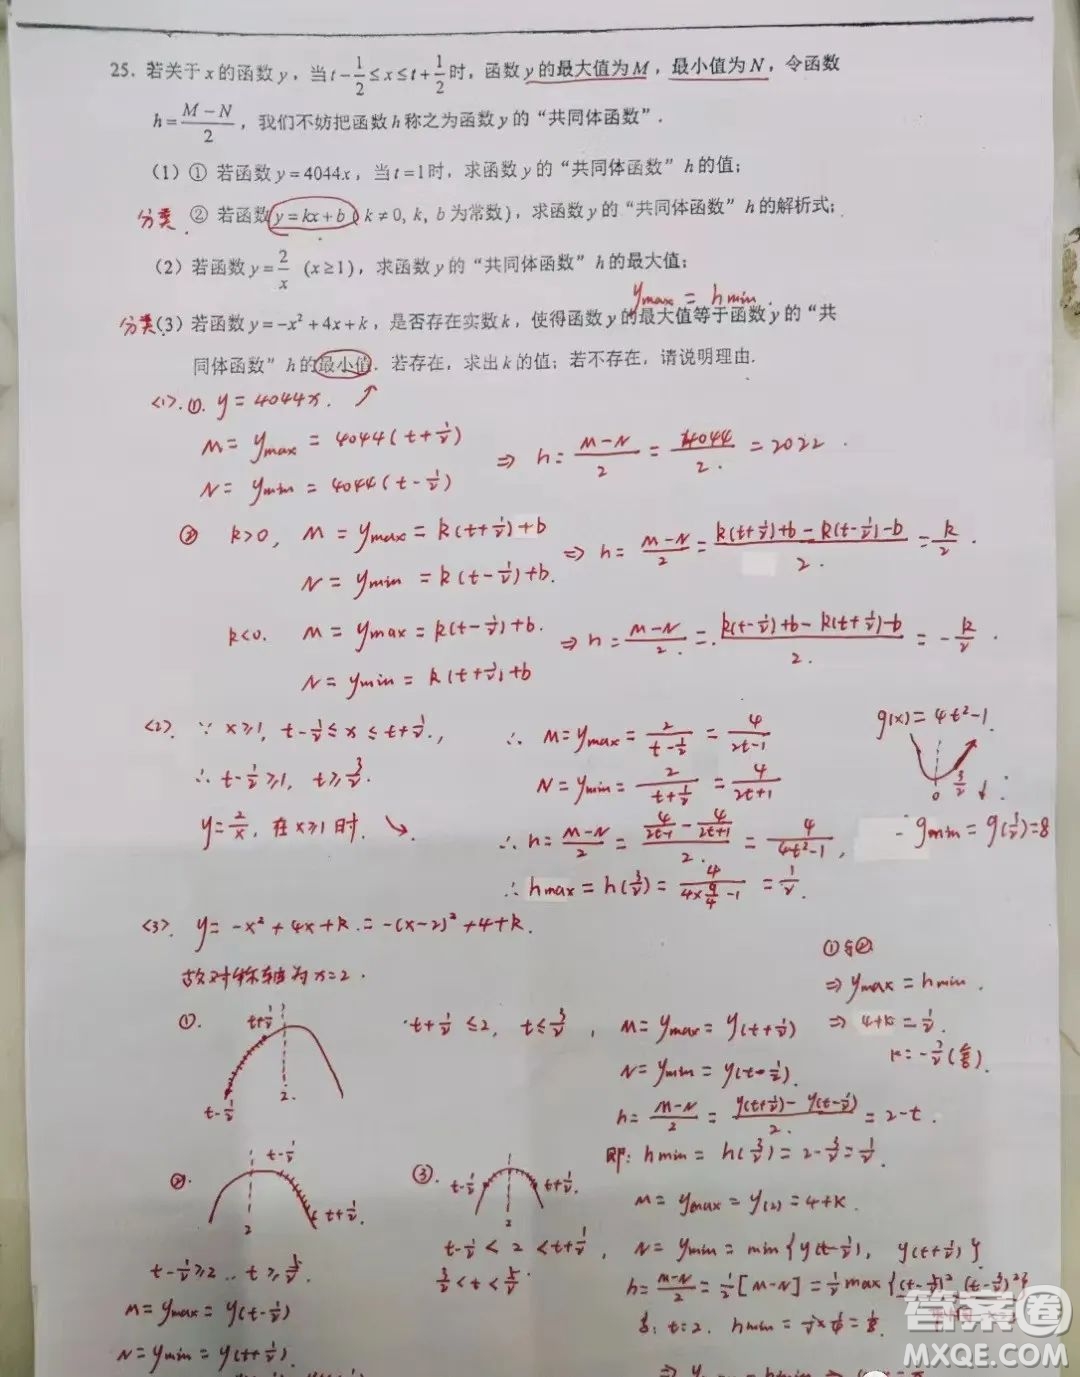 25. 若关于x的函数y，当t-1/2≤x≤t+1/2时，函数y的最大值为M，最小值为N，令函数
h=(M-N)/2，我们不妨把函数h称之为函数y的“共同体函数”.
(1)① 若函数y=4044x，当t=1时，求函数y的“共同体函数”h的值；
分类 ② 若函数y=kx+b(k≠0, k, b为常数)，求函数y的“共同体函数”h的解析式；
(2)若函数y=2/x (x≥1)，求函数y的“共同体函数”h的最大值；
ymax = hmin.
分类(3)若函数y=-x²+4x+k，是否存在实数k，使得函数y的最大值等于函数y的“共
同体函数”h的最小值. 若存在，求出k的值；若不存在，请说明理由.
<1>.①. y=4044x. ↗
M=ymax=4044(t+1/2)
N=ymin=4044(t-1/2)
⇒ h=(M-N)/2=4044/2=2022.
② k>0, M=ymax=k(t+1/2)+b
N=ymin=k(t-1/2)+b.
⇒ h=(M-N)/2=(k(t+1/2)+b-k(t-1/2)-b)/2=k/2.
k<0. M=ymax=k(t-1/2)+b.
N=ymin=k(t+1/2)+b
⇒ h=(M-N)/2=(k(t-1/2)+b-k(t+1/2)-b)/2=-k/2.
<2>. ∵ x≥1, t-1/2≤x≤t+1/2,
∴ t-1/2≥1, t≥3/2.
y=2/x, 在x≥1时. ↘
∴ M=ymax=2/(t-1/2)=4/(2t-1)
N=ymin=2/(t+1/2)=4/(2t+1)
∴ h=(M-N)/2=(4/(2t-1)-4/(2t+1))/2=4/(4t²-1),
∴ hmax=h(3/2)=4/(4×9/4-1)=1/2.
g(x)=4t²-1.
0 3/2
gmin=g(3/2)=8
<3>. y=-x²+4x+k.=-(x-2)²+4+k.
故对称轴为x=2.
①.
t+1/2
t-1/2
2.
t+1/2≤2, t≤3/2, M=ymax=y(t+1/2)
N=ymin=y(t-1/2).
h=(M-N)/2=(y(t+1/2)-y(t-1/2))/2=2-t.
即: hmin=h(3/2)=2-3/2=1/2.
①与②
⇒ ymax=hmin.
⇒ 4+k=1/2.
k=-7/2(舍).
②.
t-1/2
2
t+1/2.
t-1/2≥2.. t≥5/2.
M=ymax=y(t-1/2)
N=ymin=y(t+1/2).
③.
t-1/2
t+1/2.
2
t-1/2<2<t+1/2,
3/2<t<5/2.
M=ymax=y(2)=4+k.
N=ymin=min{y(t-1/2), y(t+1/2)}
h=(M-N)/2=1/2[M-N]=1/2max{
t=2. hmin=1/2×1/4=1/8.
答案圈
MXQE.COM